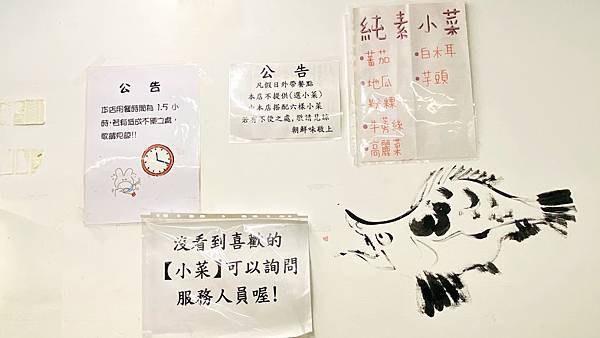 公 告
本店用餐時間為 1.5 小
時,若有造成不便之處,
敬請見諒!!
公 告
凡假日外帶餐點
本店不提供(選小菜)
由本店搭配六樣小菜
若有不便之處,敬請見諒
朝鮮味敬上
純素小菜
•蕃茄
•地瓜
粉粿
•牛蒡絲
•高麗菜
•白木耳
•芋頭
沒看到喜歡的
【小菜】可以詢問
服務人員喔!